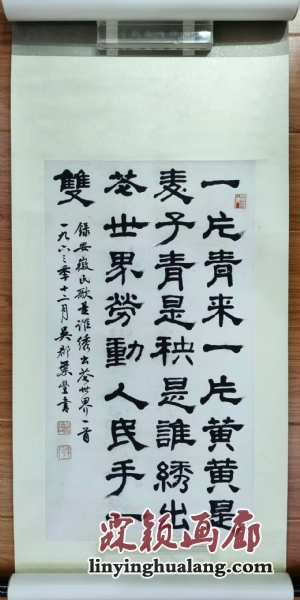 一片青来一片黄黄是
麦子青是秧是誰綉出
花世界勞動人民手一
雙
録安徽民歌是誰綉出花世界一首
一九六三年十二月吴郡葉書
颖画廊
linyinghualang.com